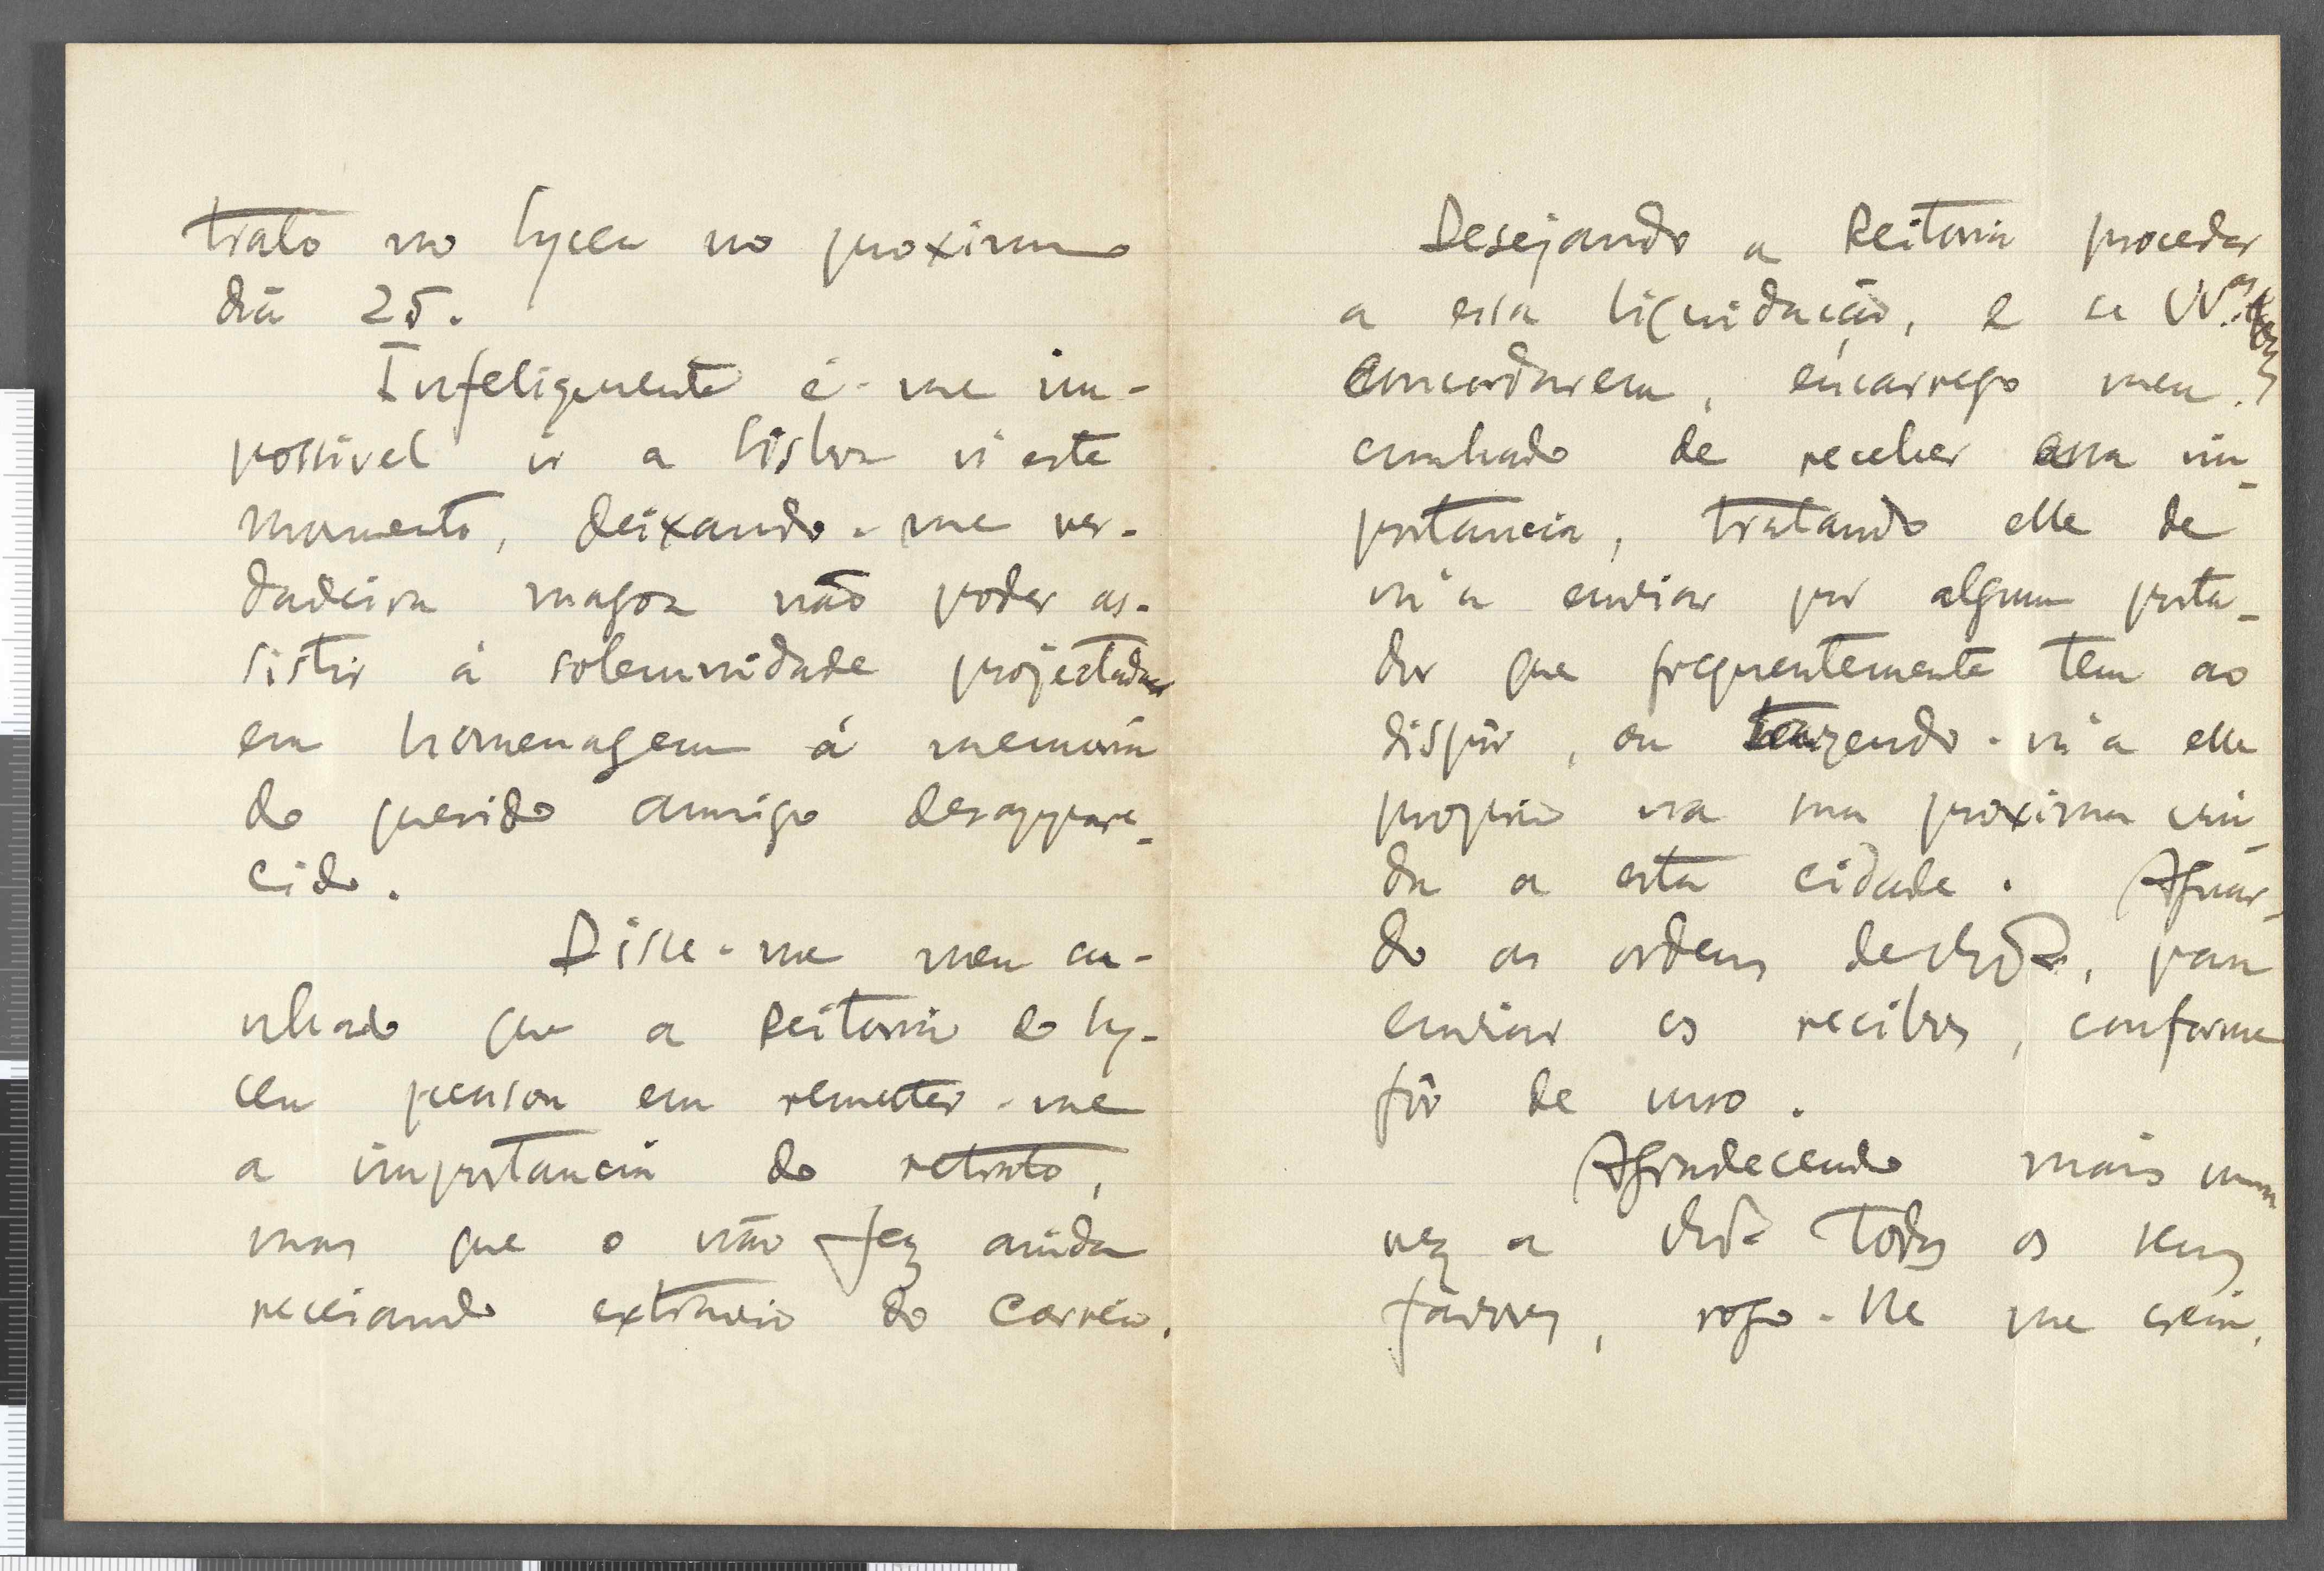 trato no lyceu no proximo
dia 25.
Infelizmente é-me im-
possivel ir a Lisboa n'este
momento, deixando-me ver-
dadeira magoa não poder as-
sistir á solemnidade projectada
em homenagem á memoria
do querido amigo desappare-
cido.
Disse-me meu cu-
nhado que a Reitoria do ly-
ceu pensou em remeter-me
a importancia do retrato,
mas que o não fez ainda
receiando extravio do Correio.
Desejando a Reitoria proceder
a essa liquidação, e se
concordarem, encarrego meu
cunhado de receber essa im-
portancia, tratando elle de
m'a enviar por algum porta-
dor que frequentemente tem ao
dispôr, ou trazendo-m'a elle
proprio na sua proxima vin-
da a esta cidade. Aguar-
do as ordens de, para
enviar os recibos, conforme
fôr de uso.
Agradecendo mais uma
vez a todos os seus
favores, rogo-lhe me creia,